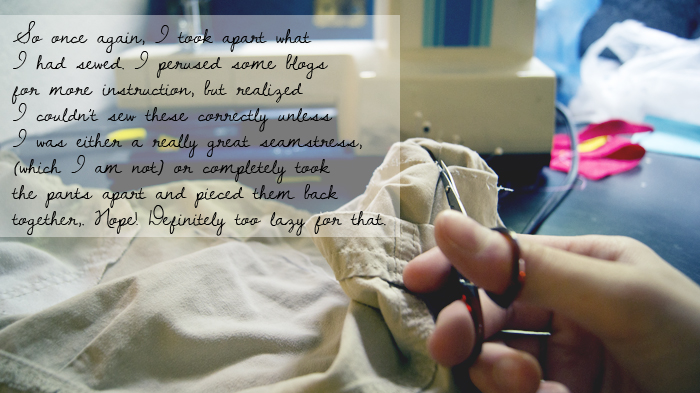 So once again, I took apart what
I had sewed. I perused some blogs
for more instruction, but realized
I couldn't sew these correctly unless
I was either a really great seamstress,
(which I am not) or completely took
the pants apart and pieced them back
together,. Nope! Definitely too lazy for that.